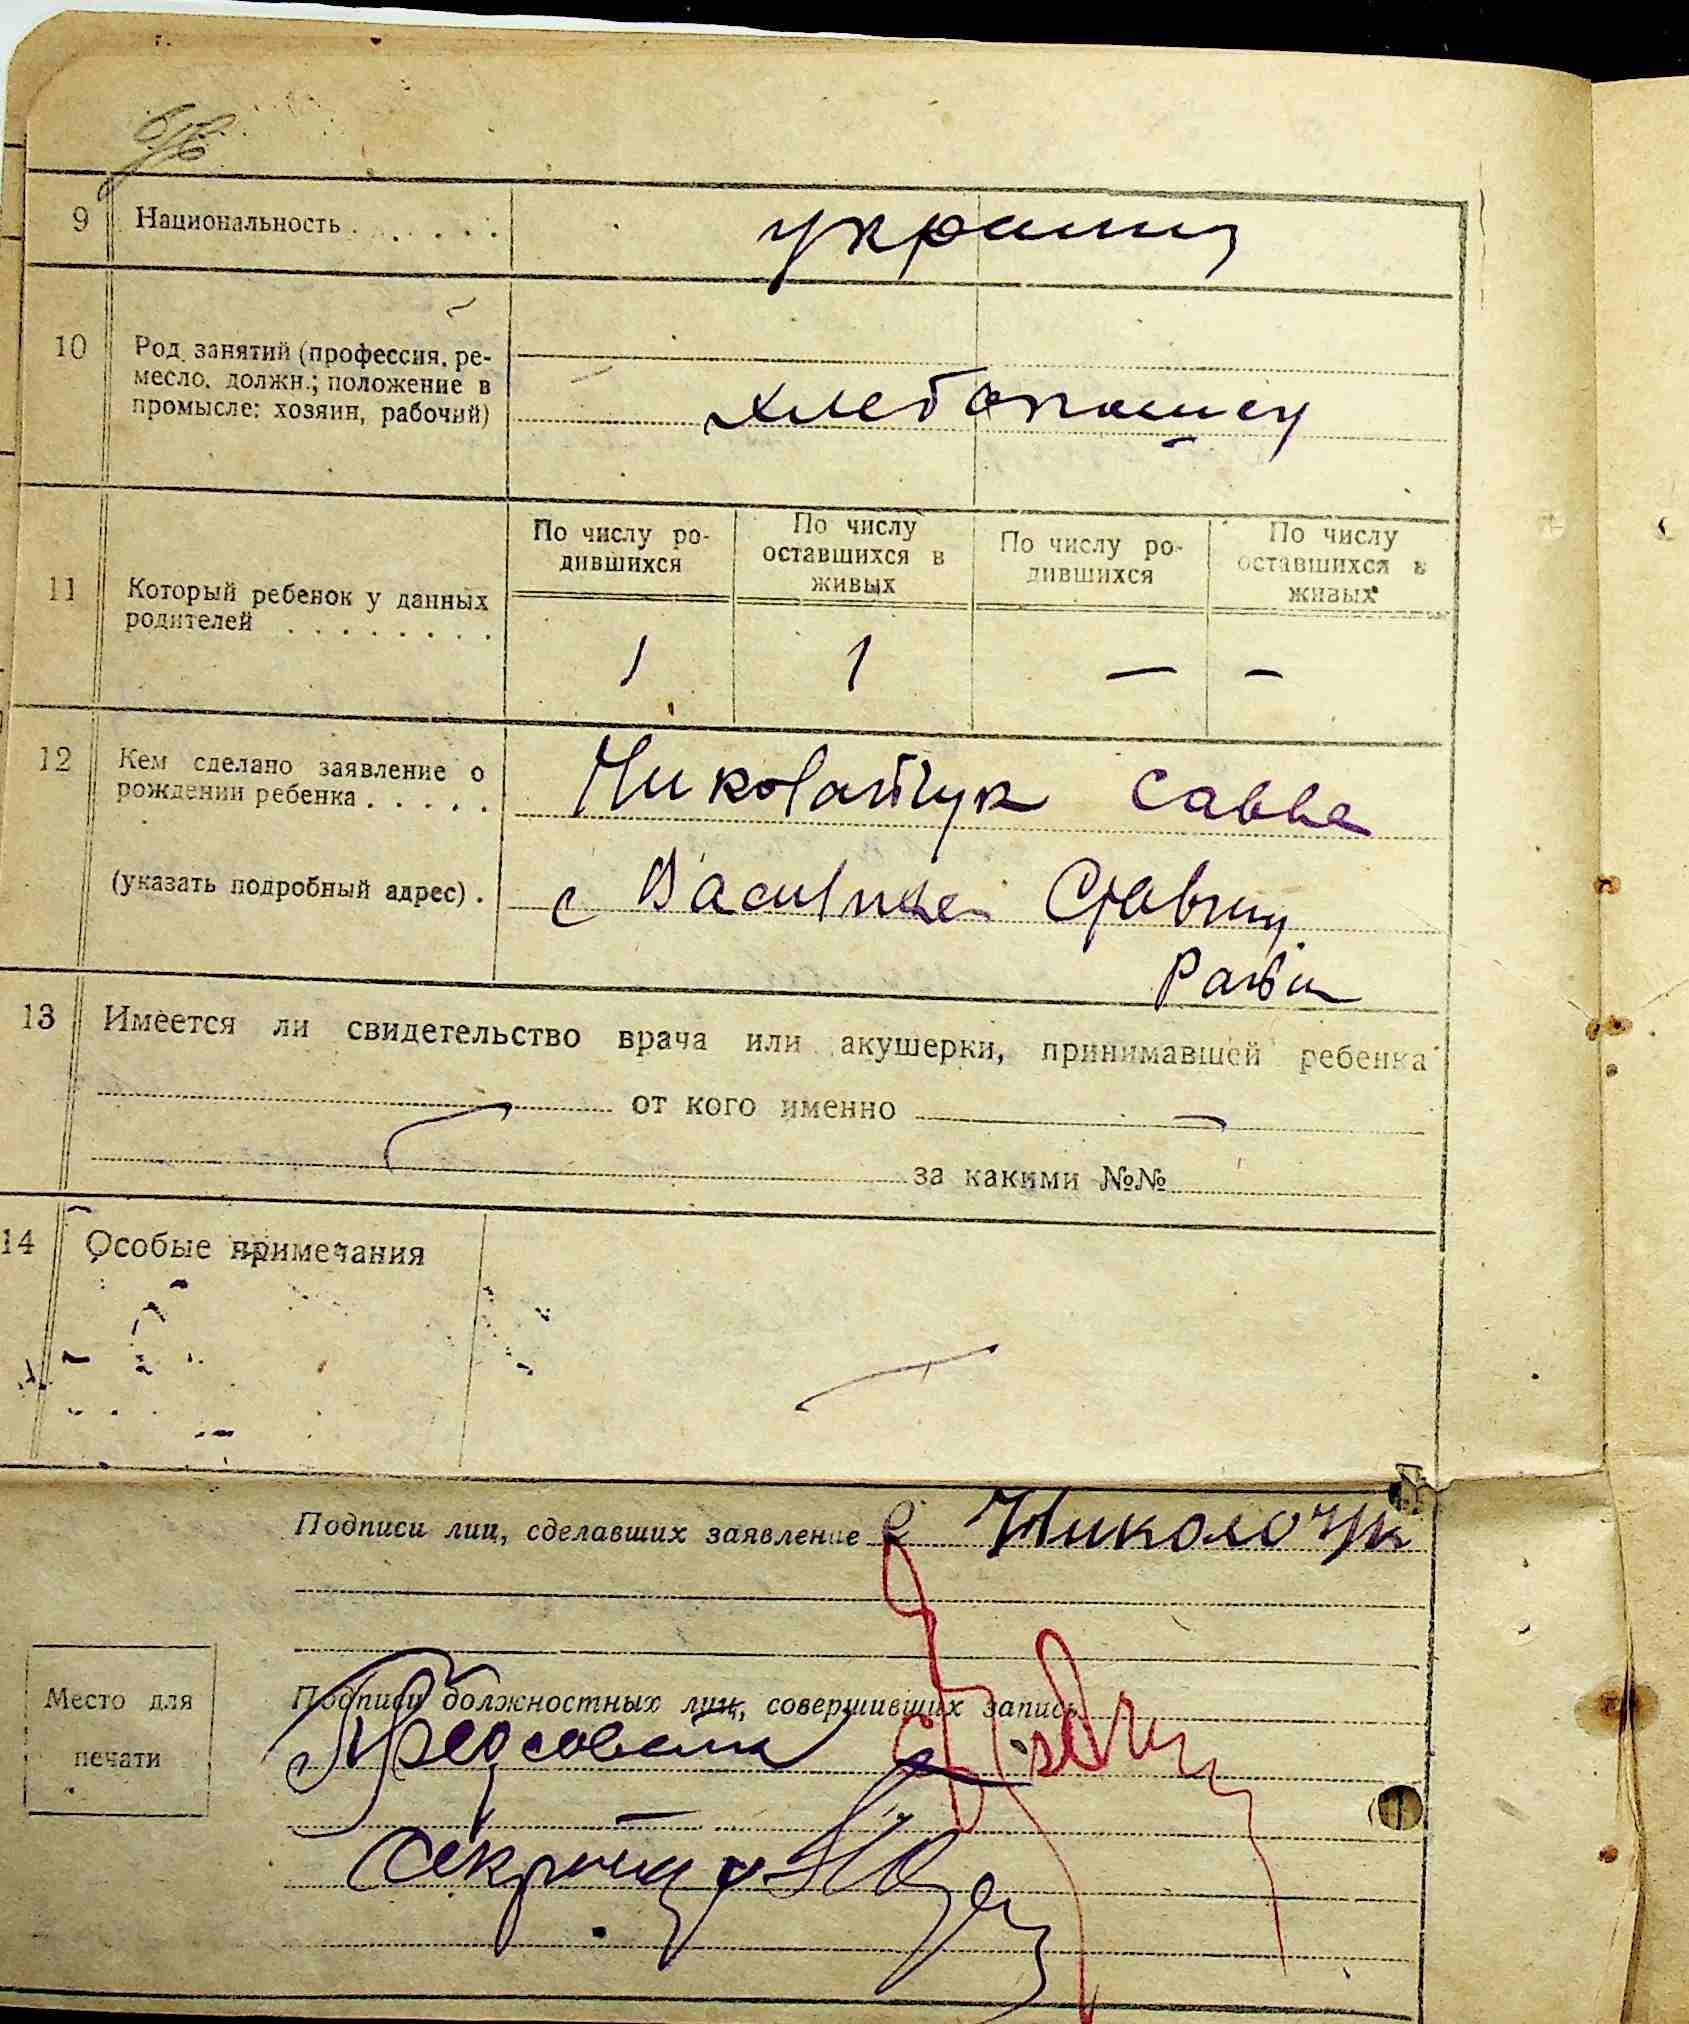 9 Национальность . . . . . . . украинц
10 Род занятий (профессия, ре-
месло, должн.; положение в
промысле: хозяин, рабочий)
хлебопашец
11 Который ребенок у данных
родителей . . . . . . . .
По числу ро-
дившихся
По числу
оставшихся в
живых
По числу ро-
дившихся
По числу
оставшихся в
живых
1 1 — —
12 Кем сделано заявление о
рождении ребенка . . . . .
Николайчук Савва
(указать подробный адрес) .
с
района
13 Имеется ли свидетельство врача или акушерки, принимавшей ребенка
от кого именно
за какими №№
14 Особые примечания
Подписи лиц, сделавших заявление Николочук
Место для
печати
Подписи должностных лиц, совершивших запись
Предсовета
Секретарь